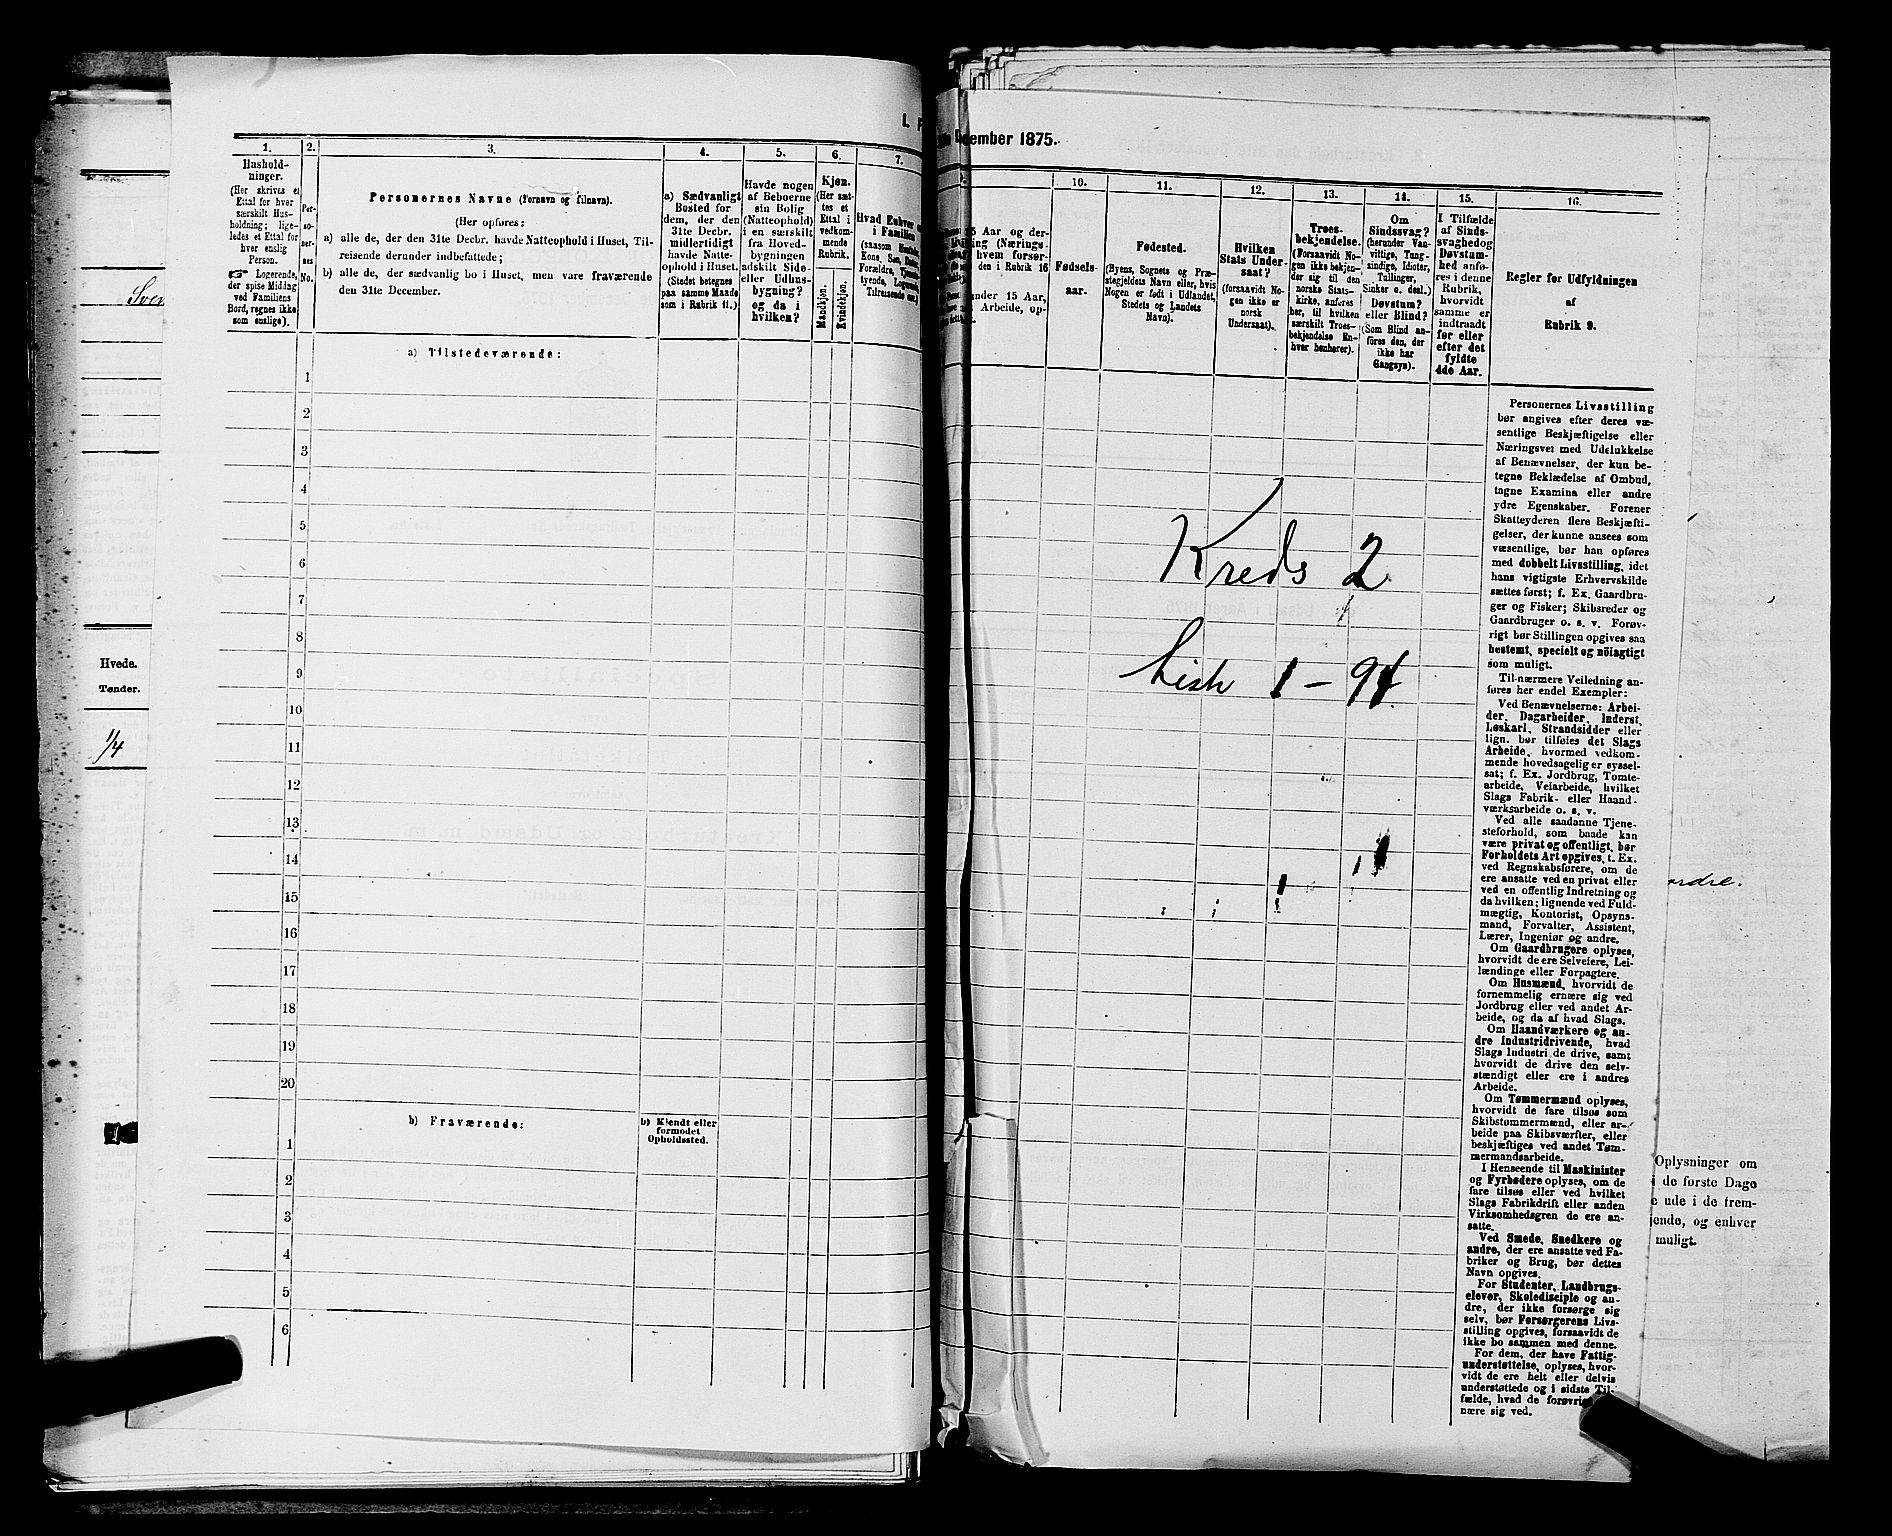 Sven
Hvede.
Tønder.
1/4
I.
December 1875.
1.
Hushold-
ninger.
(Her skrives et
Ettal for hver
særskilt Hus-
holdning; lige-
ledes et Ettal for
hver enslig
Person.
☞ Logerende,
der spise Middag
ved Familiens
Bord, regnes ikke
som enslige).
2.
Per-
so-
ner-
nes
No.
3.
Personernes Navne (Fornavn og Tilnavn).
(Her opføres:
a) alle de, der den 31te Decbr. havde Natteophold i Huset, Til-
reisende derunder indbefattede;
b) alle de, der sædvanlig bo i Huset, men vare fraværende
den 31te December.
4.
a) Sædvanligt
Bosted for
dem, der den
31te Decbr.
midlertidigt
havde Natte-
ophold i Huset.
(Stedet betegnes
paa samme Maade
som i Rubrik 11.)
5.
Havde nogen
af Beboerne
sin Bolig
(Natteophold)
i en særskilt
fra Hoved-
bygningen
adskilt Side-
eller Udhus-
bygning?
og da i
hvilken?
6.
Kjøn.
(Her sæt-
tes et
Ettal i
vedkom-
mende
Rubrik.
Mandkjøn.
Kvindekjøn.
7.
Hvad Enhver
i Familien
(saasom
Kone, Søn,
Forældre,
tyende,
Tilreisende
9.
15 Aar og der-
(Nærings-
hvem forsør-
den i Rubrik 16
under 15 Aar,
Arbeide, op-
10.
Fødsels-
aar.
11.
Fødested.
(Byens, Sognets og Præ-
stegjeldets Navn eller, hvis
Nogen er født i Udlandet,
Stedets og Landets
Navn).
12.
Hvilken
Stats Under-
saat?
(forsaavidt No-
gen ikke er
norsk
Undersaat).
13.
Troes-
bekjendelse.
(Forsaavidt No-
gen ikke bekjen-
der sig til den
norske Stats-
kirke, anføres
her, til hvilken
særskilt Troes-
bekjendelse En-
hver henhører).
14.
Om
Sindssvag?
(herunder Van-
vittige, Tung-
sindige, Idioter,
Tullinger,
Sinker o. desl.)
Døvstum?
eller Blind?
(Som Blind an-
føres den, der
ikke har
Gangsyn).
15.
I Tilfælde
af Sinds-
svaghed og
Døvstum-
hed anfø-
res i denne
Rubrik,
hvorvidt
samme er
indtraadt
før eller
efter det
fyldte
4de Aar.
16.
Regler for Udfyldningen
af
Rubrik 9.
a) Tilstedeværende:
1
2
3
4
5
6
7
8
9
10
11
12
13
14
15
16
17
18
19
20
b) Fraværende:
b) Kjendt eller
formodet
Opholdssted.
1
2
3
4
5
6
Kreds 2
Liste 1 - 94
Personernes Livsstilling
bør angives efter deres væ-
sentlige Beskjæftigelse eller
Næringsvei med Udelukkelse
af Benævnelser, der kun be-
tegne Beklædelse af Ombud,
tagne Examina eller andre
ydre Egenskaber. Forener
Skatteyderen flere Beskjæfti-
gelser, der kunne ansees som
væsentlige, bør han opføres
med dobbelt Livsstilling, idet
hans vigtigste Erhvervskilde
sættes først; f. Ex. Gaardbru-
ger og Fisker; Skibsreder og
Gaardbruger o. s. v. Forøv-
rigt bør Stillingen opgives saa
bestemt, specielt og nøiagtigt
som muligt.
Til nærmere Veiledning an-
føres her endel Exempler:
Ved Benævnelserne: Arbei-
der, Dagarbeider, Inderst,
Løskarl, Strandsidder eller
lign. bør tilføies det Slags
Arbeide, hvormed vedkom-
mende hovedsagelig er syssel-
sat; f. Ex. Jordbrug, Tomte-
arbeide, Veiarbeide, hvilket
Slags Fabrik- eller Haand-
værksarbeide o. s. v.
Ved alle saadanne Tjene-
steforhold, som baade kan
være privat og offentligt, bør
Forholdets Art opgives, t. Ex.
ved Regnskabsførere, om de
ere ansatte ved en privat eller
ved en offentlig Indretning og
da hvilken; lignende ved Fuld-
mægtig, Kontorist, Opsyns-
mand, Forvalter, Assistent,
Lærer, Ingeniør og andre.
Om Gaardbrugere oplyses,
hvorvidt de ere Selveiere, Lei-
lændinge eller Forpagtere.
Om Husmænd, hvorvidt de
fornemmelig ernære sig ved
Jordbrug eller ved andet Ar-
beide, og da af hvad Slags.
Om Haandværkere og an-
dre Industridrivende, hvad
Slags Industri de drive, samt
hvorvidt de drive den selv-
stændigt eller ere i andres
Arbeide.
Om Tømmermænd oplyses,
hvorvidt de fare tilsøs som
Skibstømmermænd, eller ar-
beide paa Skibsværfter, eller
beskjæftiges ved andet Tøm-
mermandsarbeide.
I Henseende til Maskinister
og Fyrbødere oplyses, om de
fare tilsøs eller ved hvilket
Slags Fabrikdrift eller anden
Virksomhedsgren de ere an-
satte.
Ved Smede, Snedkere og
andre, der ere ansatte ved Fa-
briker og Brug, bør dettes
Navn opgives.
For Studenter, Landbrugs-
elever, Skoledisciple og an-
dre, der ikke forsørge sig
selv, bør Forsørgerens Livs-
stilling opgives, forsaavidt de
ikke bo sammen med denne.
For dem, der have Fattig-
understøttelse, oplyses, hvor-
vidt de ere helt eller delvis
understøttede og i sidste Til-
fælde, hvad de forøvrigt
nære sig ved.
Oplysninger om
i de første Dage
ude i de frem-
og enhver
muligt.